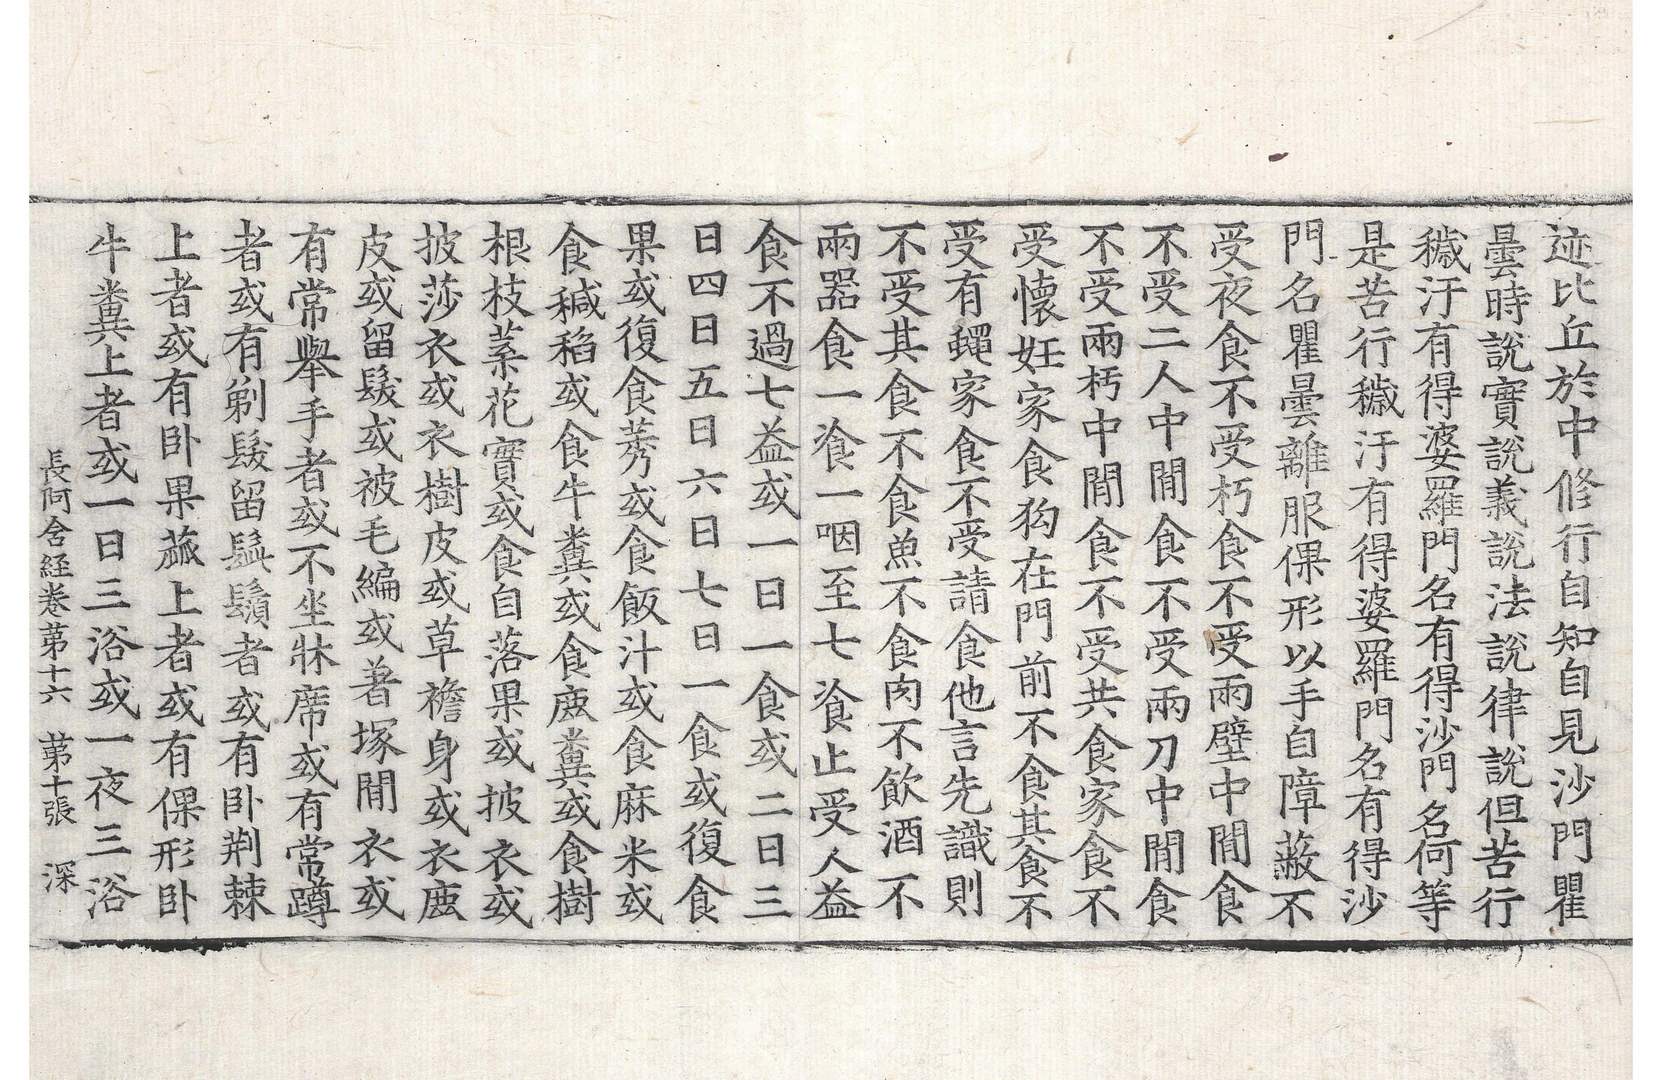 迹比丘於中修行自知自見沙門瞿
曇時說實說義說法說律說但苦行
穢汙有得婆羅門名有得沙門名何等
是苦行穢汙有得婆羅門名有得沙
門名瞿曇離服倮形以手自障蔽不
受夜食不受朽食不受兩壁中間食
不受二人中間食不受兩刀中間食
不受兩杇中間食不受共食家食不
受懷妊家食狗在門前不食其食不
受有蠅家食不受請食他言先識則
不受其食不食魚不食肉不飲酒不
兩器食一飡一咽至七飡止受人益
食不過七益或一日一食或二日三
日四日五日六日七日一食或復食
果或復食莠或食飯汁或食麻米或
食䅯稻或食牛糞或食鹿糞或食樹
根枝葉花實或食自落果或披衣或
披莎衣或衣樹皮或草襜身或衣鹿
皮或留髮或被毛編或著塚間衣或
有常舉手者或不坐牀席或有常蹲
者或有剃髮留髯鬚者或有臥荊棘
上者或有臥果蓏上者或有倮形臥
牛糞上者或一日三浴或一夜三浴
長阿含経卷第十六 第十張 深